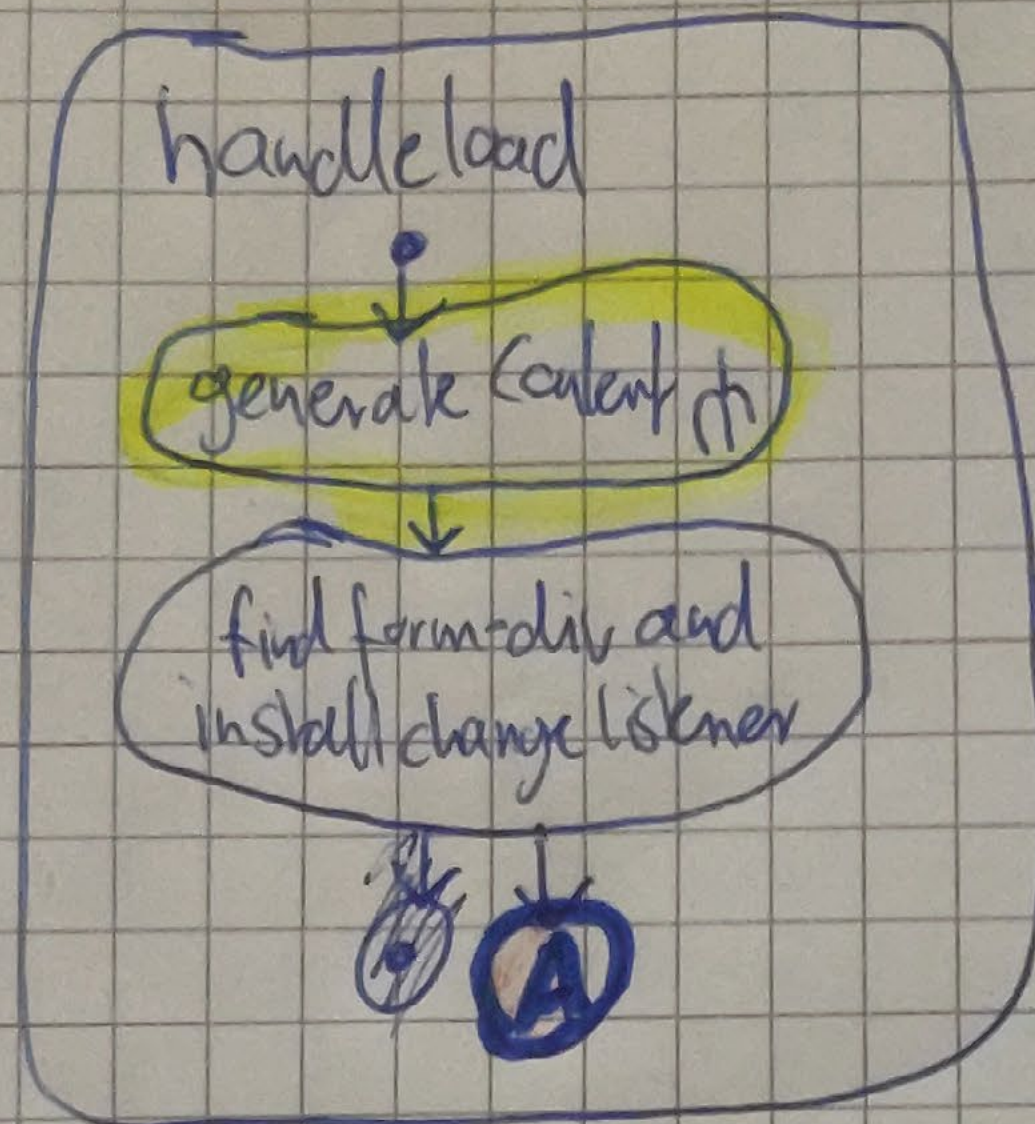 handleload
generate Content
find form-div and
install change listener
A